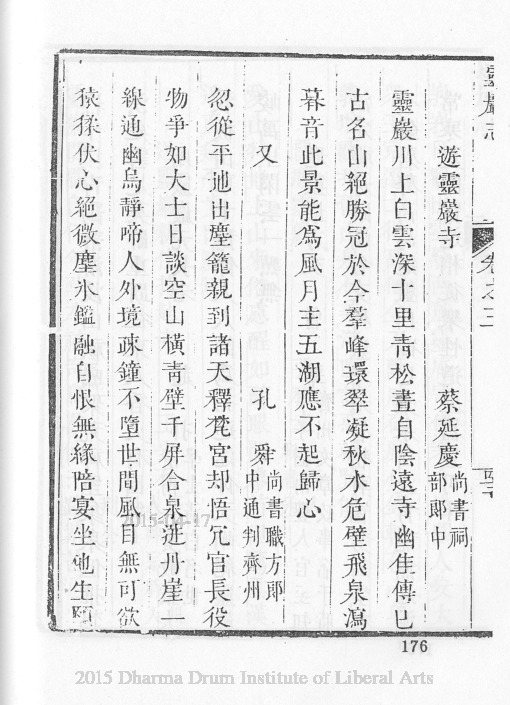 靈巖志
卷之三
遊靈巖寺 蔡延慶 尚書祠部郎中
靈巖川上白雲深十里青松晝自陰遠寺幽佳傳已
古名山絕勝冠於今羣峰環翠凝秋水危壁飛泉瀉
暮音此景能爲風月主五湖應不起歸心
又 孔舜 尚書職方郎中通判齊州
忽從平地出塵籠親到諸天釋梵宮却悟冗官長役
物爭如大士日談空山橫青壁千屏合泉迸丹崖一
線通幽鳥靜啼人外境疎鐘不墮世間風目無可欲
猿猱伏心絕微塵氷鑑融自恨無緣陪宴坐他生
176
2015 Dharma Drum Institute of Liberal Arts